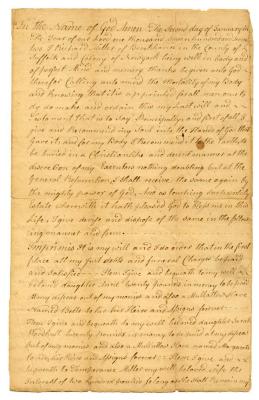 In the Name of God Amen The second day of January in
the Year of our Lord one thousand seven hundred and seventy
two I Richard Miller of Brookhaven in the County of
Suffolk and Colony of Newyork being well in body and
of perfect mind and memory thanks be given unto God
therefor Calling unto mind the Mortality of my Body
and Knowing that it is appointed for all men once to
dy do make and ordain this my last will and
Testament that is to say Principally and first of all I
give and Recommend my Soul into the Hands of God that
Gave it and for my Body I Recommend it to the Earth to
be buried in a Christianlike and decent manner at the
discretion of my Executors nothing doubting but at the
general Resurrection I shall receive the same again by
the mighty power of God And as touching such worldly
estate wherewith it hath pleased God to bless me in this
Life, I give devise and dispose of the same in the follow
ing manner and form
Imprimis It is my will and I do order that in the first
place all my just debts and funeral Charges be paid
and satisfied Item I give and bequeath to my well
beloved daughter twenty pounds in money to be paid
out of my moveables and also a Mullatto Slave
Named Belle to her her Heirs and Assigns forever
Item I give and bequeath to my well beloved daughter Sarah
Woodhull twenty pounds in money to be paid
out of my moveables and also a Mullatto Slave named
to her her Heirs and Assigns forever Item I give and
bequeath to Temperance Miller my well beloved wife the
Interest of two Hundred pounds so long as she shall remain my